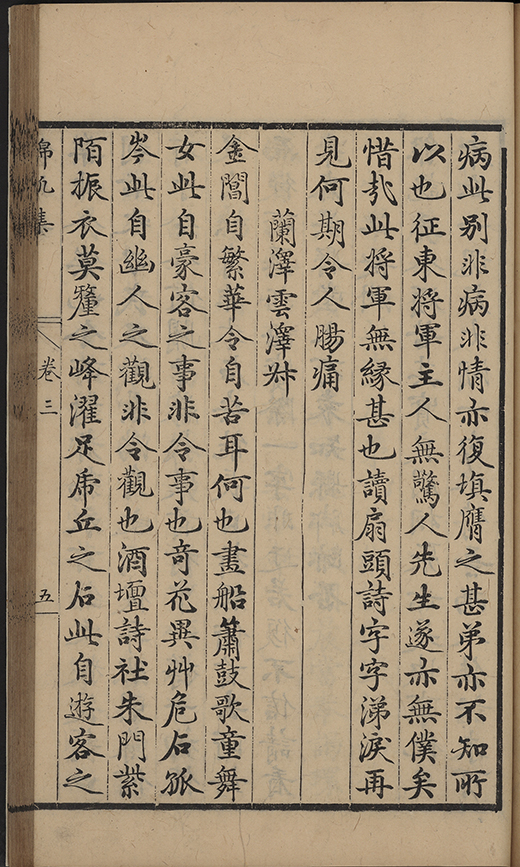 病此別非病非情亦復填膺之甚弟亦不知所
以也征東將軍主人無驚人先生遂亦無僕矣
惜哉此將軍無緣甚也讀扇頭詩字字涕淚再
見何期令人腸痛
蘭澤雲澤叔
金閶自繁華令自苦耳何也畫船簫鼓歌童舞
女此自豪客之事非令事也奇花異艸危石孤
岑此自幽人之觀非令觀也酒壇詩社朱門紫
陌振衣莫釐之峰濯足虎丘之石此自遊客之
錦帆集
卷三
五